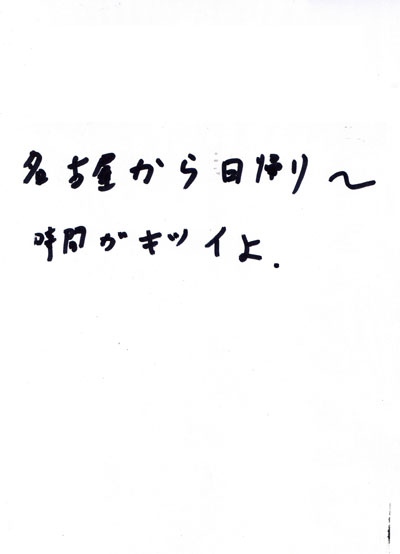 名古屋から日帰り〜
時間がキツイよ.